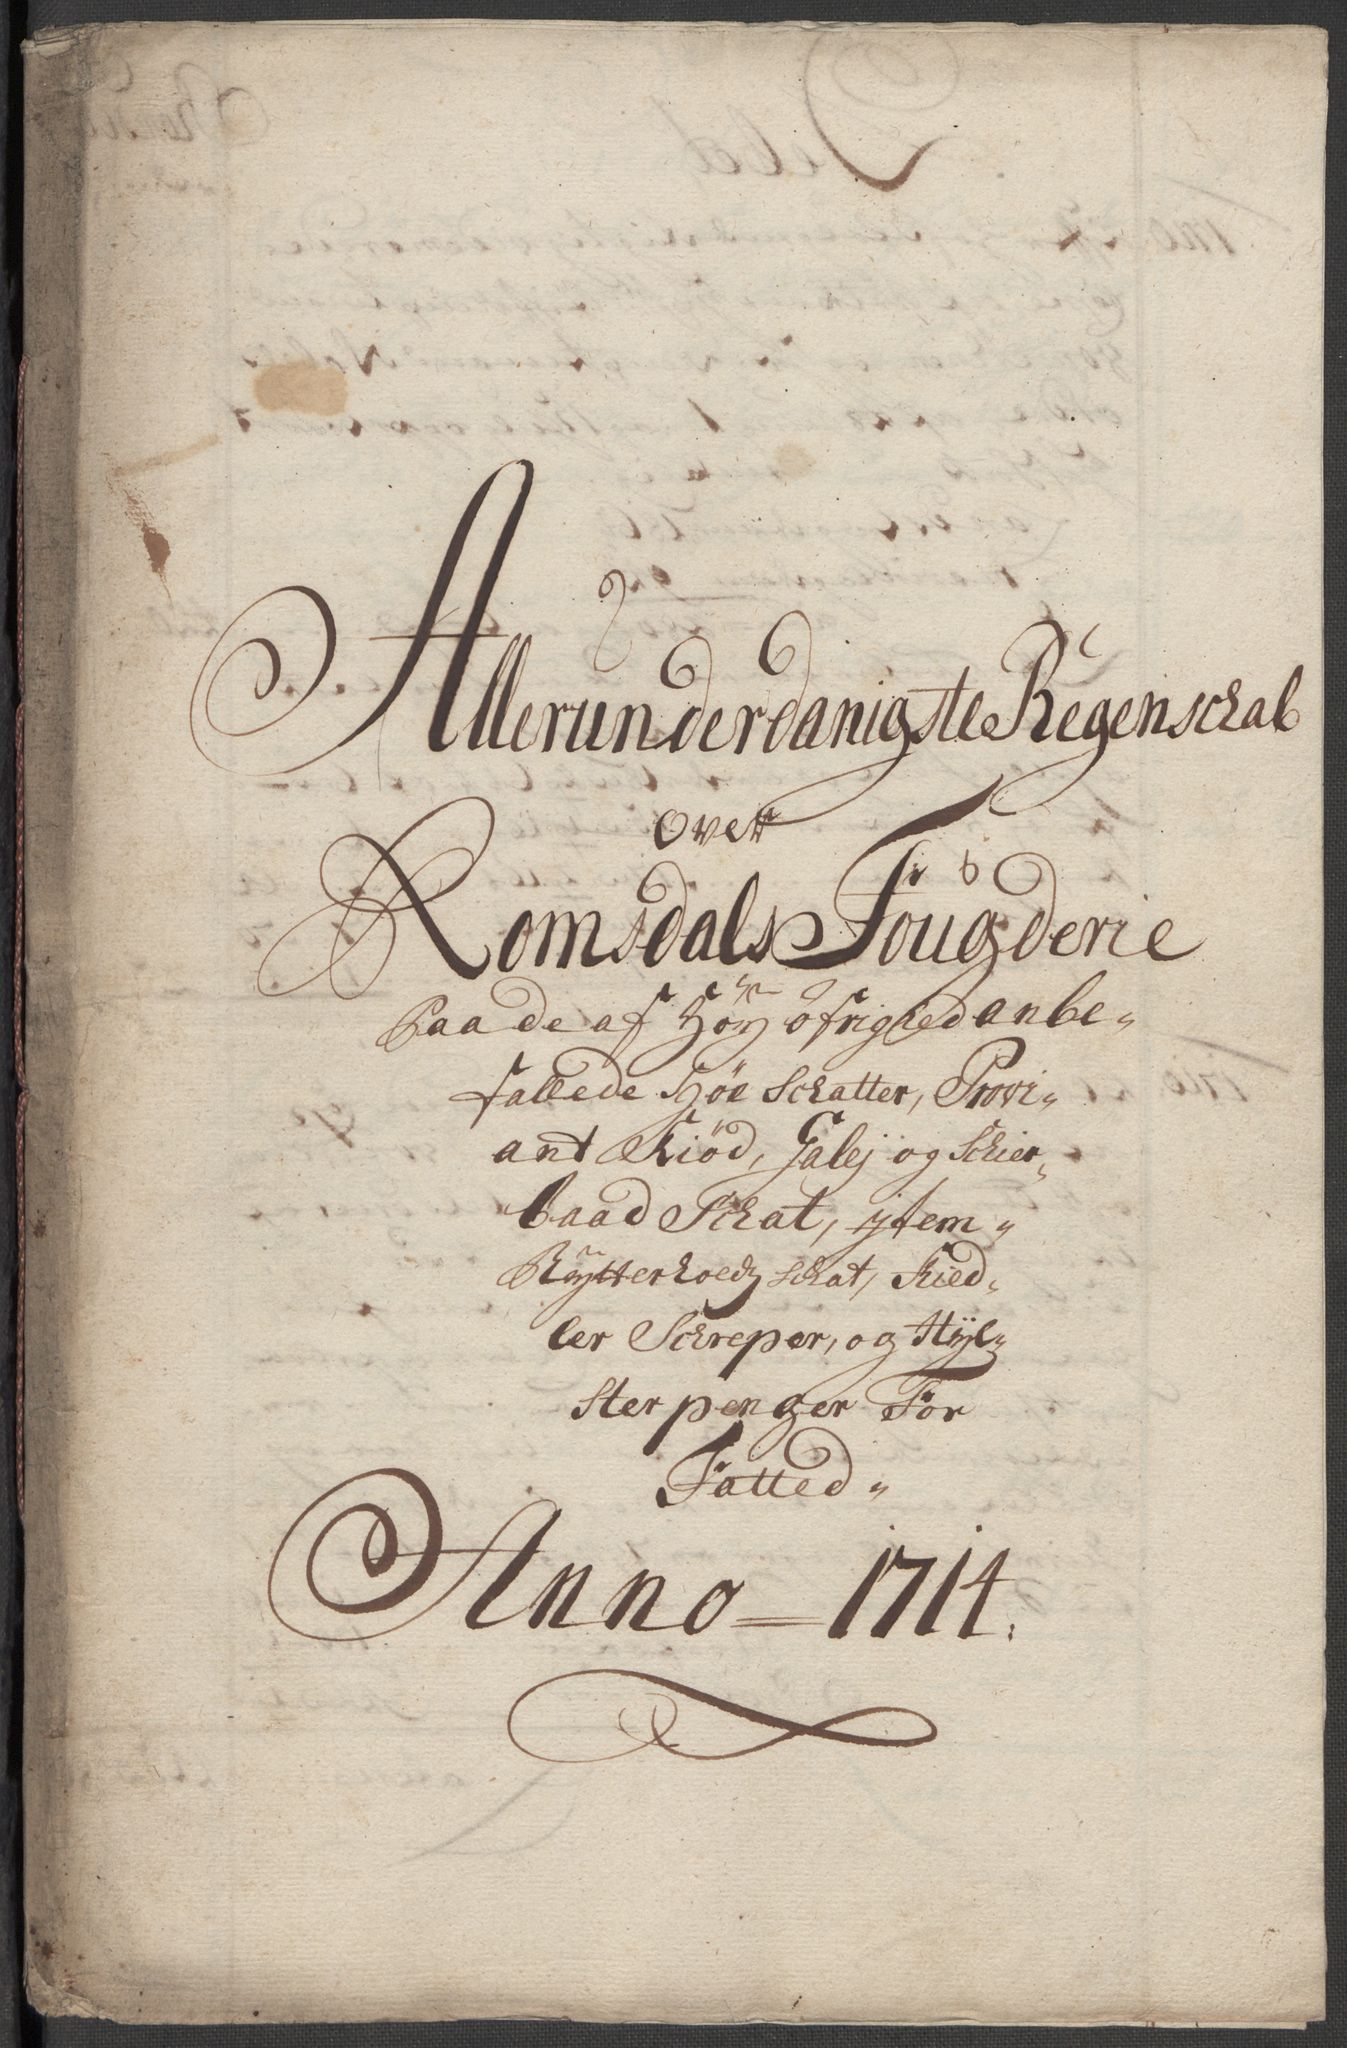 Allerunderdanigste Regenschab
over
Romsdals Fougderie
Paa de af Höy öfrighed anbe„
fallede 
Schatter, Provi„
ant Kiöd, Galej og Schier„
baad Schat, ijtem„
Rÿtterhoedz schat, Kied„
ler Schreper, og Hÿl„
ster penger For
Fatted„
Anno 1714.